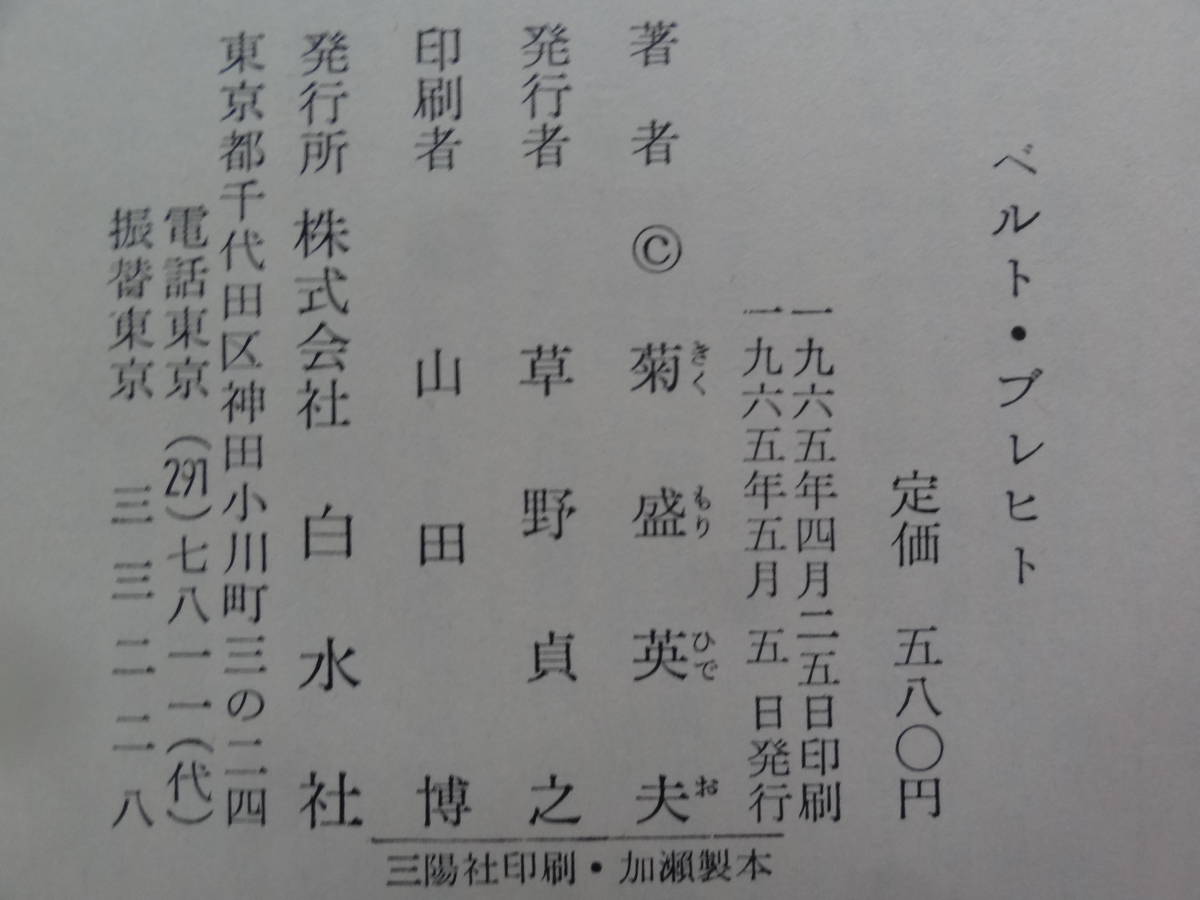 ベルト・ブレヒト
定価 五八〇円
一九六五年四月二五日印刷
一九六五年五月 五 日発行
著者 © 菊盛英夫
きく もり ひで お
発行者 草野貞之
印刷者 山田博
発行所 株式会社 白水社
東京都千代田区神田小川町三の二四
電話東京(291)七八一一(代)
振替東京 三三二二八
三陽社印刷・加瀬製本